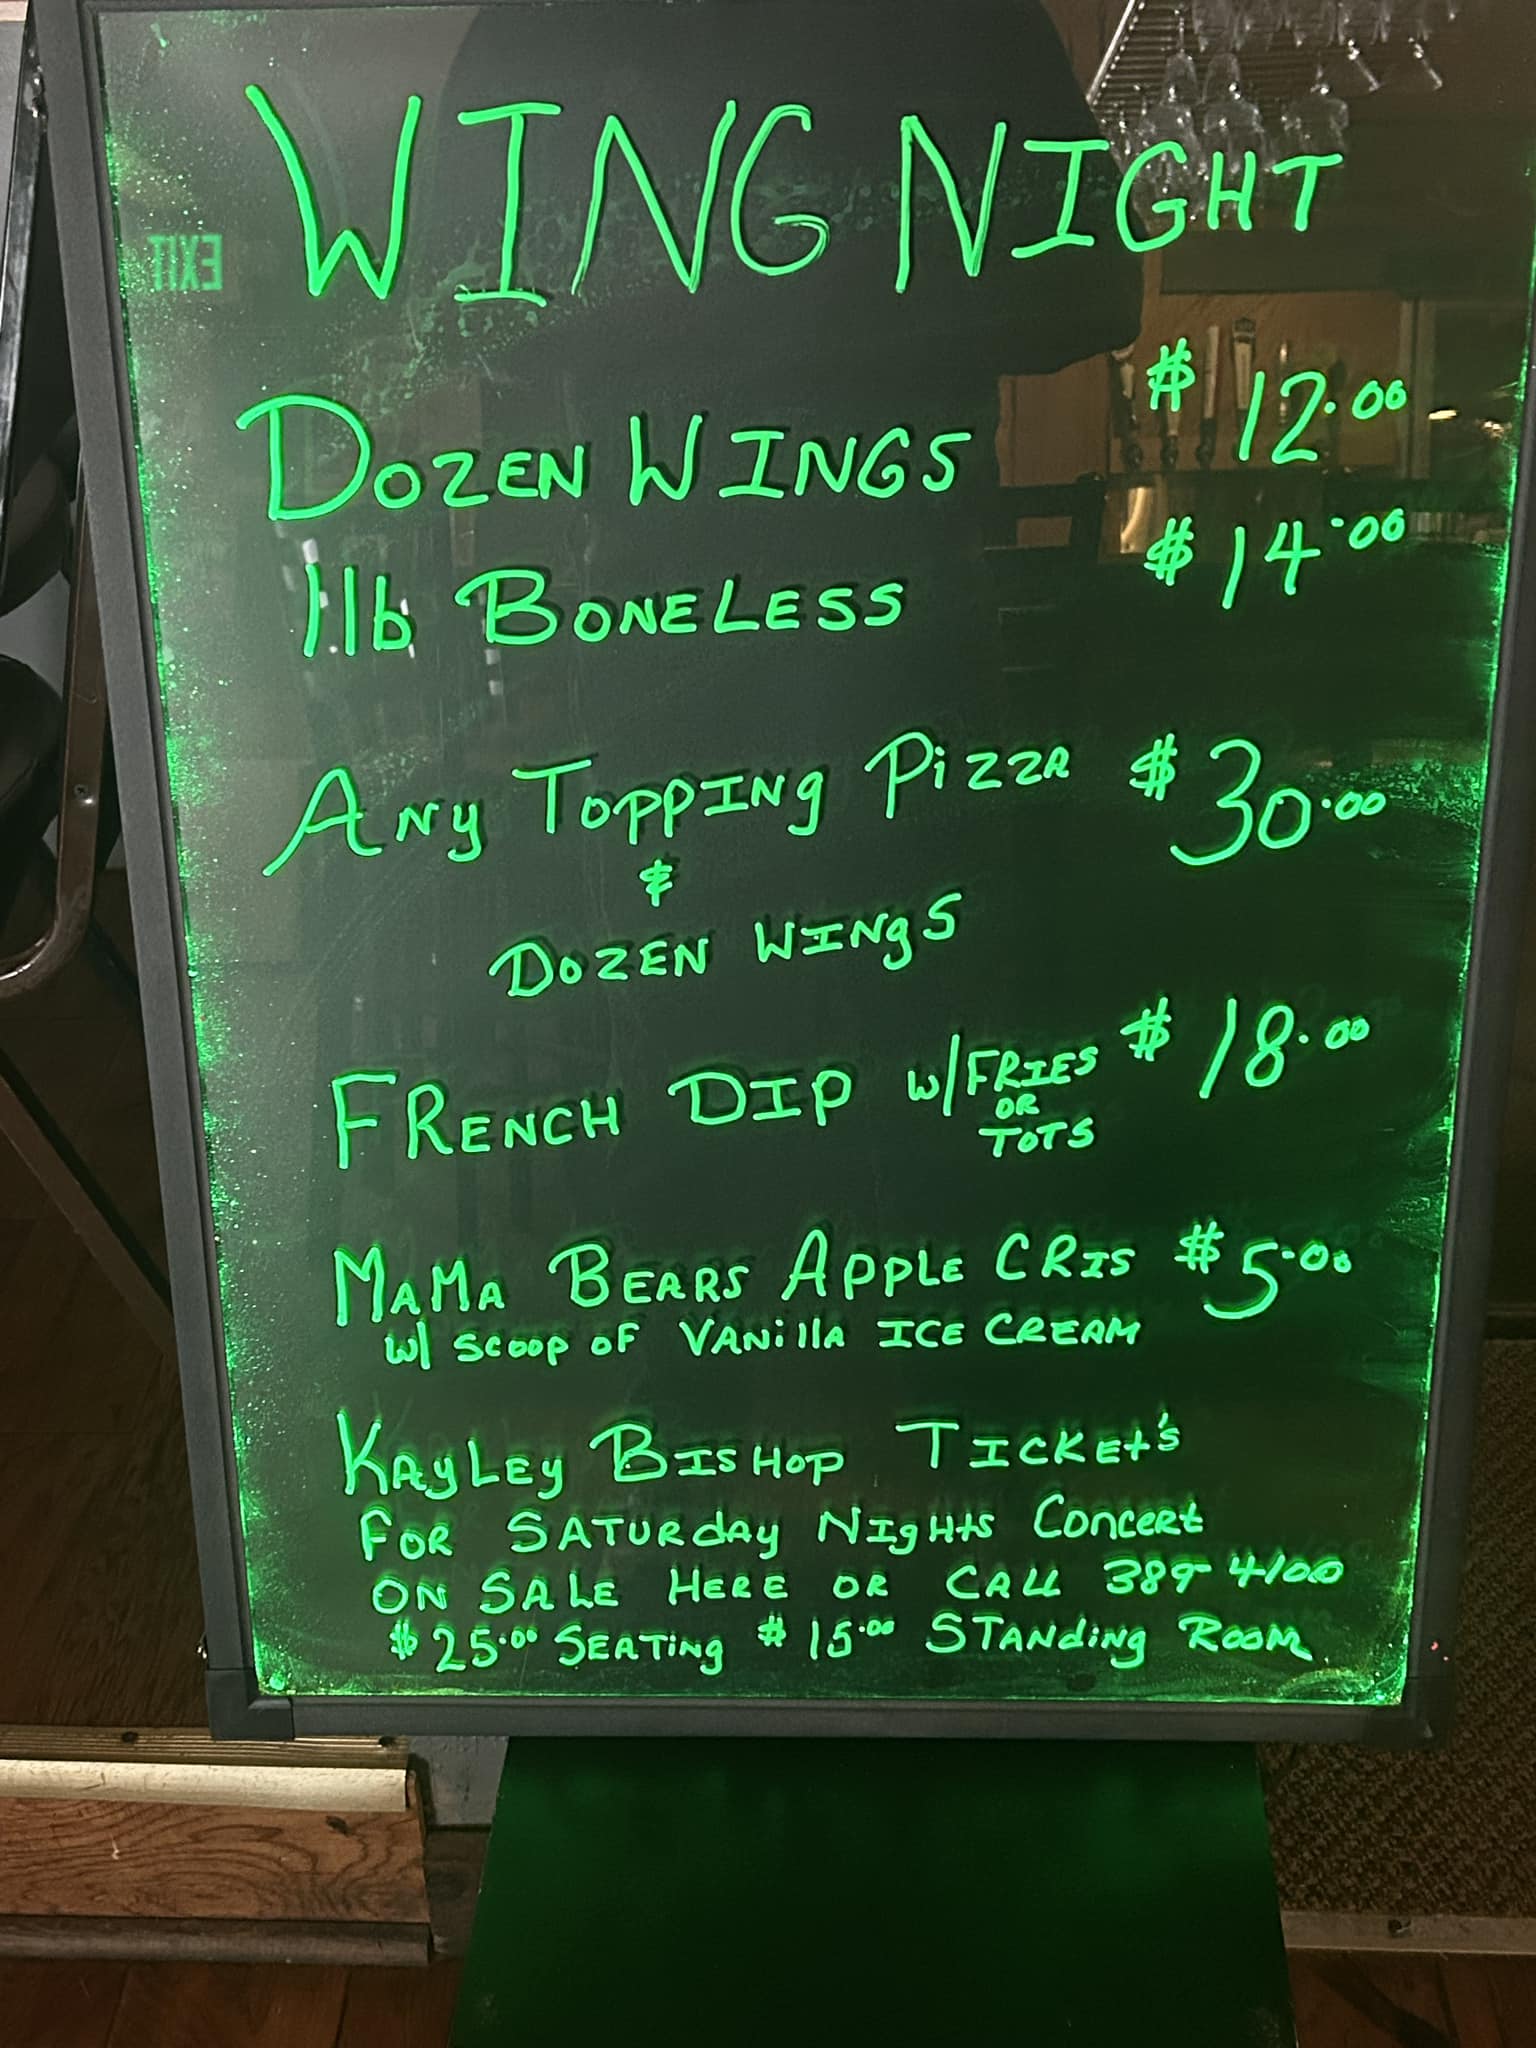 EXIT
WING NIGHT
DOZEN WINGS $12.00
1lb BONELESS $14.00
ANY TOPPING PIZZA $30.00
&
DOZEN WINGS
FRENCH DIP w/FRIES OR TOTS $18.00
MAMA BEARS APPLE CRIS $5.00
w/ SCOOP OF VANILLA ICE CREAM
KAYLEY BISHOP TICKET'S
FOR SATURDAY NIGHTS CONCERT
ON SALE HERE OR CALL 389-4100
$25.00 SEATING $15.00 STANDING ROOM